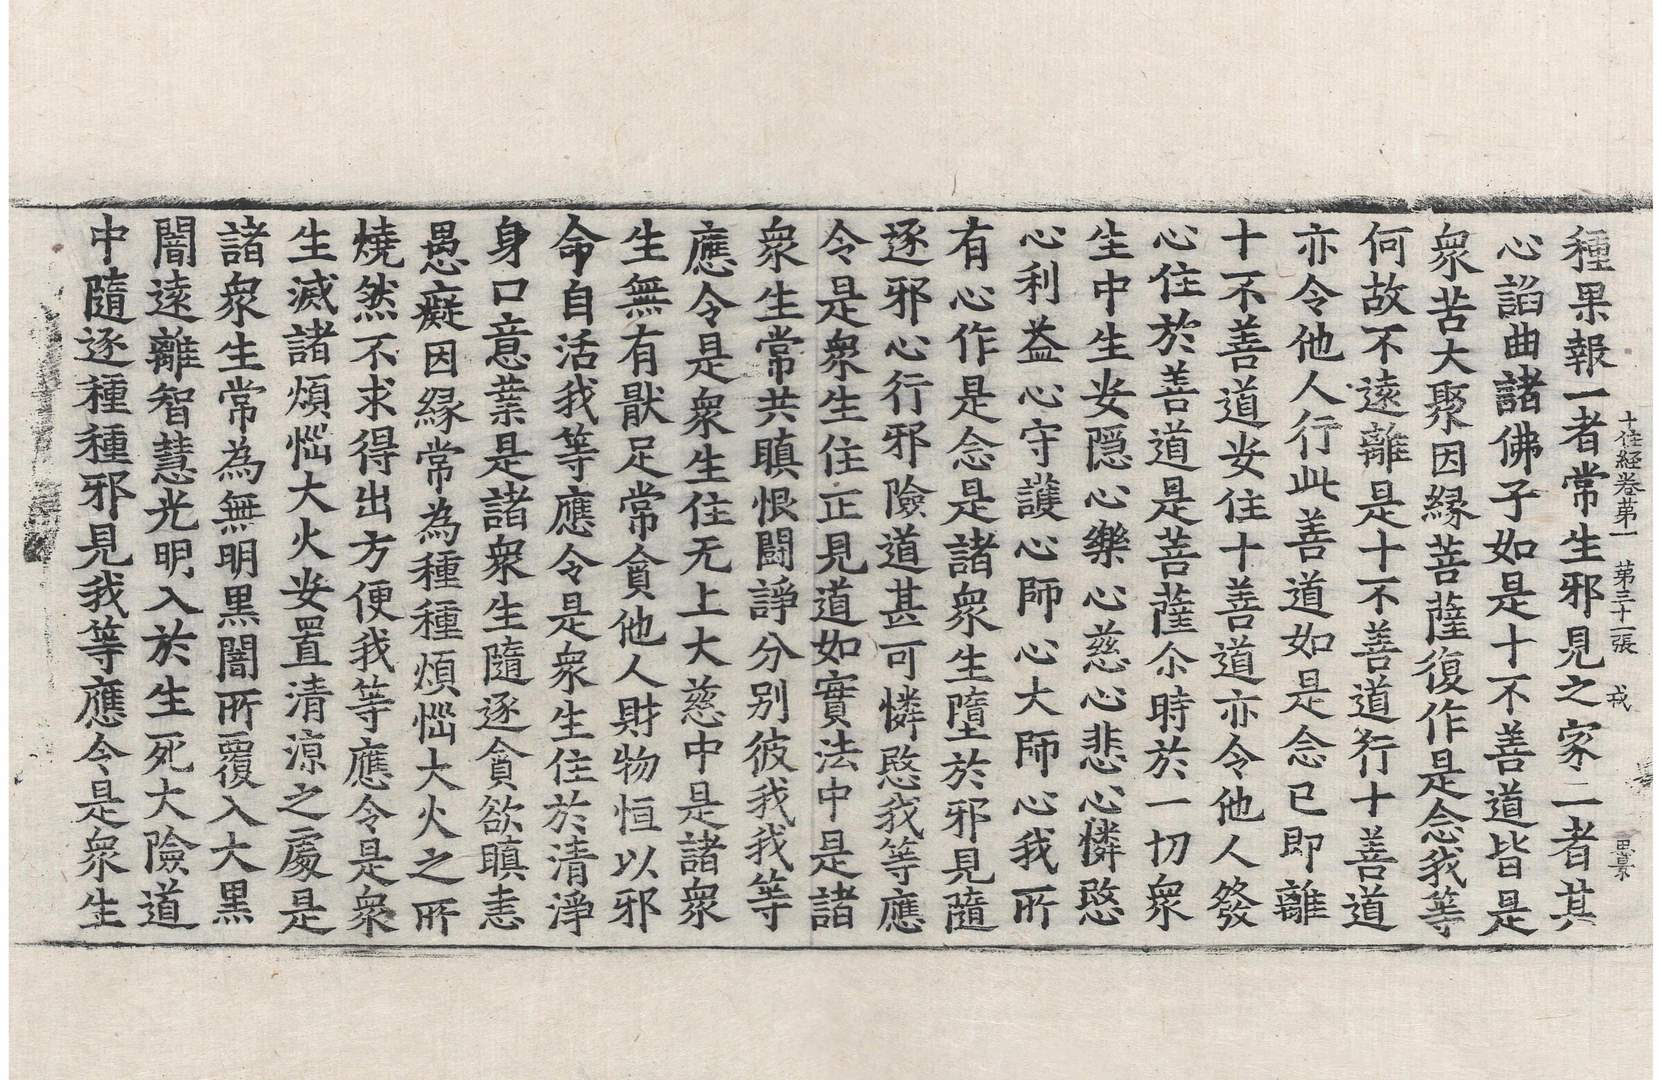 種果報一者常生邪見之家二者其
十住經卷第一　第三十一張　戎
心諂曲諸佛子如是十不善道皆是
衆苦大聚因縁菩薩復作是念我等
何故不遠離是十不善道行十善道
亦令他人行此善道如是念已即離
十不善道安住十善道亦令他人發
心住於善道是菩薩尒時於一切衆
生中生安隱心樂心慈心悲心憐愍
心利益心守護心師心大師心我所
有心作是念是諸衆生墮於邪見隨
逐邪心行邪險道甚可憐愍我等應
令是衆生住正見道如實法中是諸
衆生常共瞋恨鬪諍分別彼我我等
應令是衆生住无上大慈中是諸衆
生無有猒足常貪他人財物恒以邪
命自活我等應令是衆生住於清淨
身口意業是諸衆生隨逐貪欲瞋恚
愚癡因縁常為種種煩惱大火之所
燒然不求得出方便我等應令是衆
生滅諸煩惱大火安置清涼之處是
諸衆生常為無明黑闇所覆入大黒
闇遠離智慧光明入於生死大險道
中隨逐種種邪見我等應令是衆生